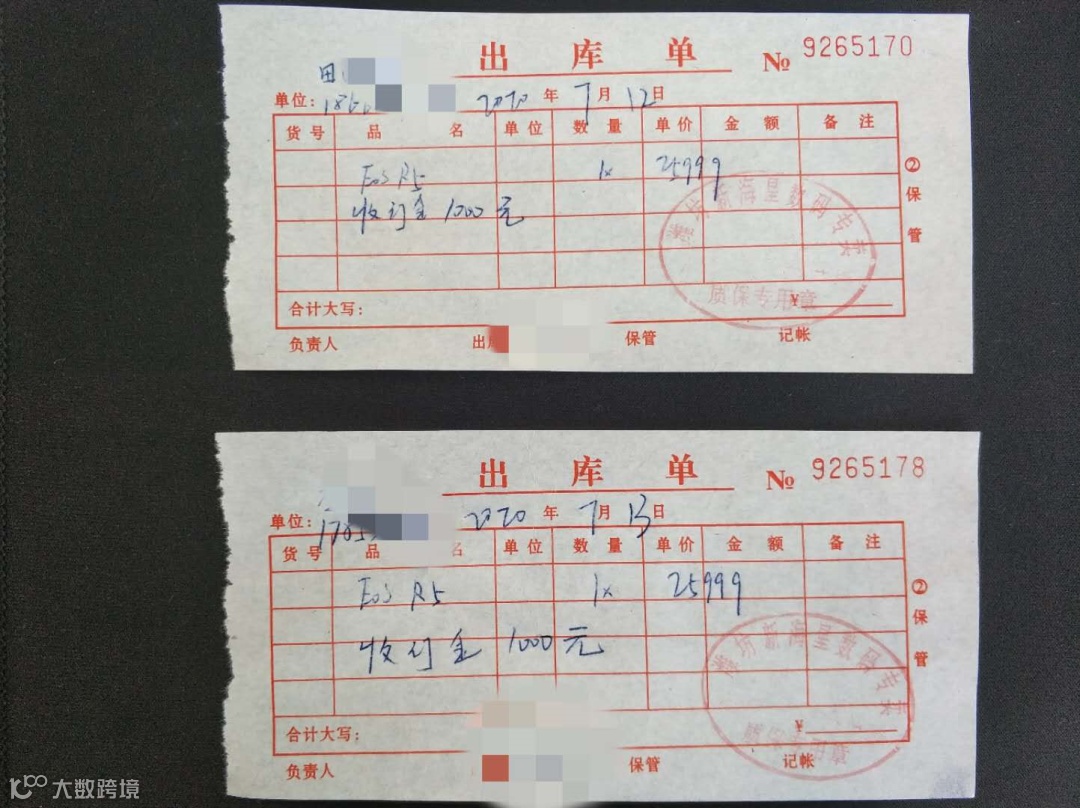 出库单 № 9265170
田
单位: 186 2020年7月12日
货号 品名 单位 数量 单价 金额 备注
EOS R5 1x 25999
收订金 1000元
潍坊新海星数码专卖
质保专用章
合计大写: ¥
负责人 出库 保管 记帐
②保管
出库单 № 9265178
单位: 1705 2020年7月13日
货号 品名 单位 数量 单价 金额 备注
EOS R5 1x 25999
收订金 1000元
潍坊新海星数码专卖
质保专用章
合计大写: ¥
负责人 保管 记帐
②保管
大数跨境